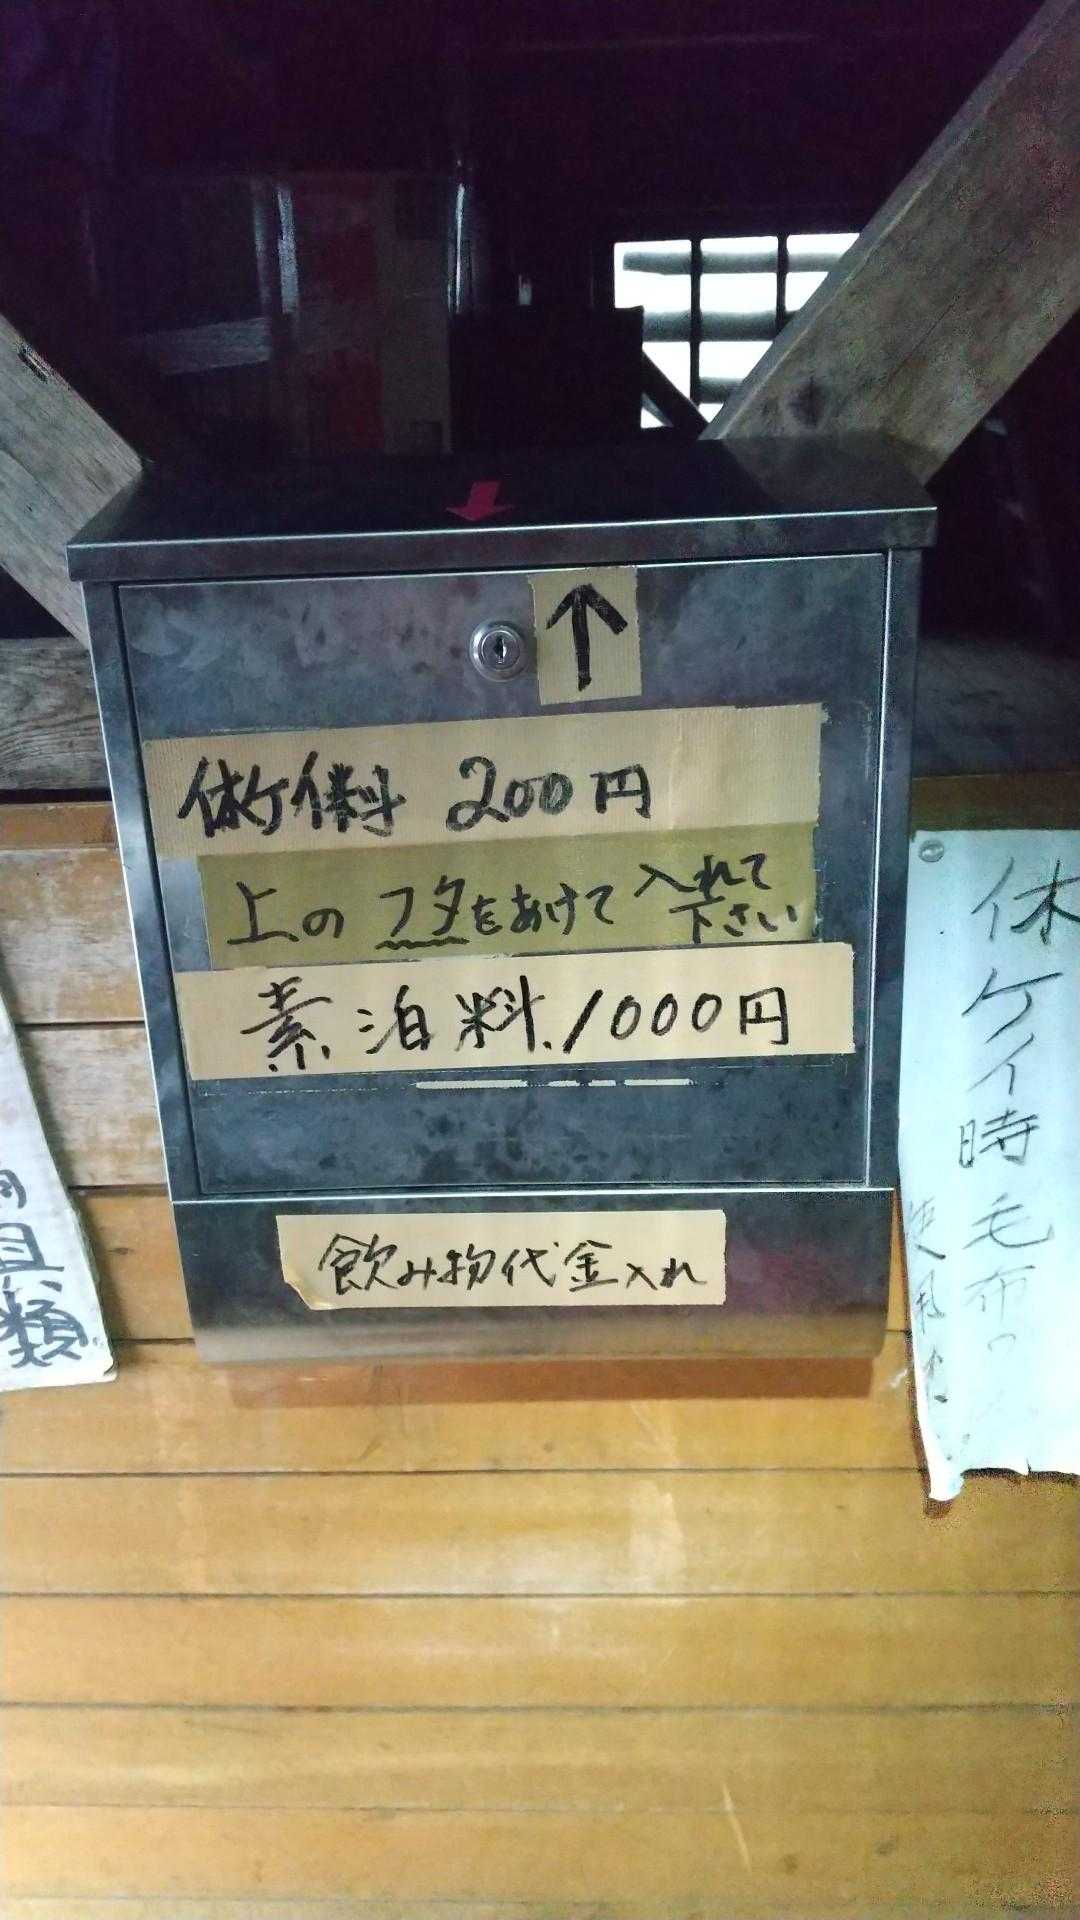 ↑
休ケイ料 200円
上のフタをあけて入れて
下さい
素泊料.1000円
飲み物代金入れ
休ケイ時毛布の
類